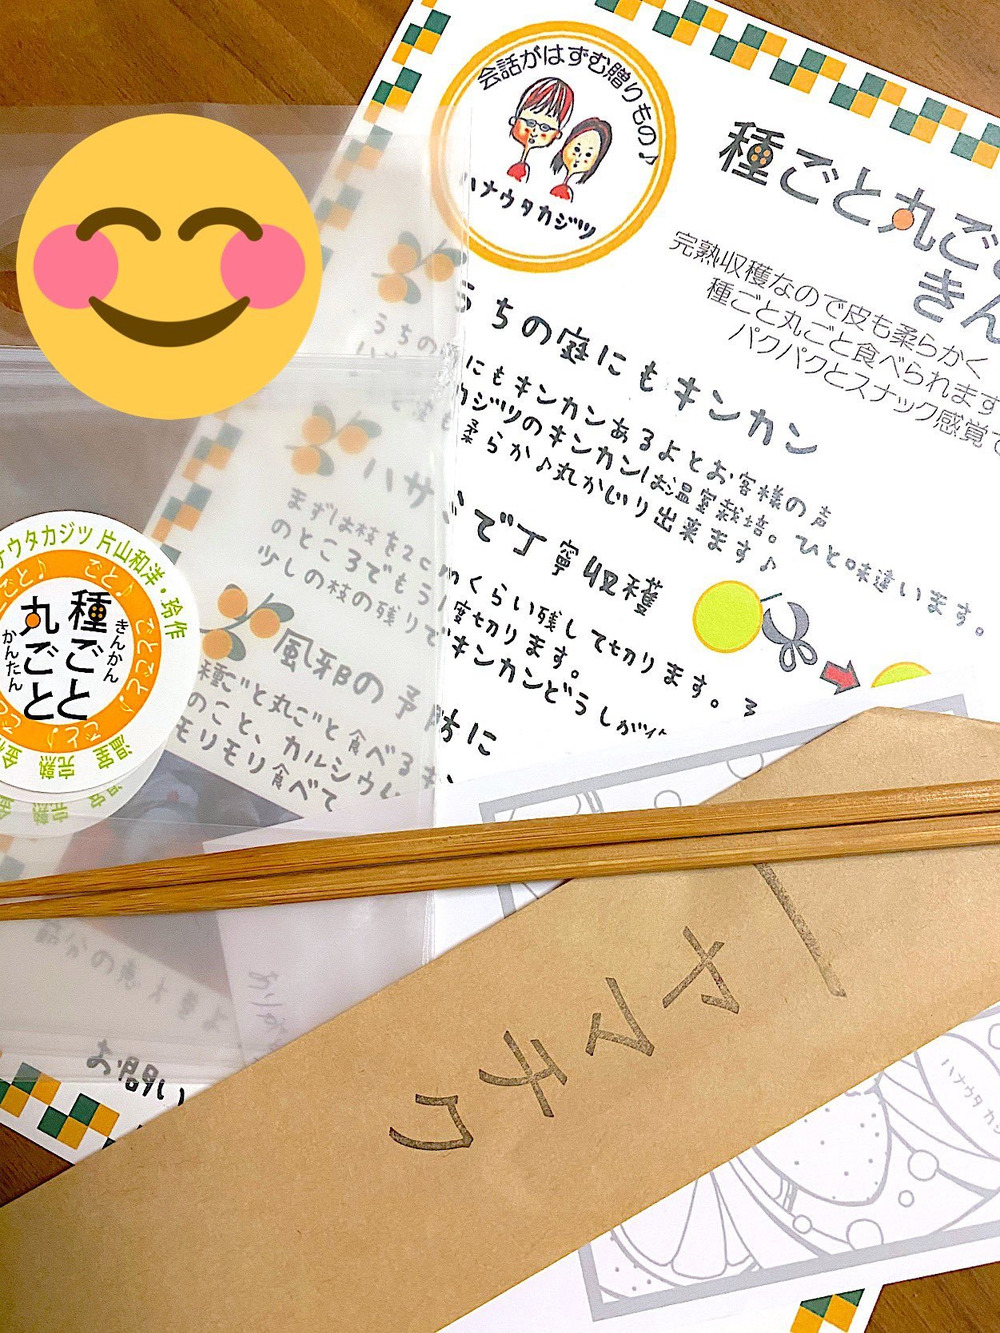 会話がはずむ贈りもの♪
ハナウタカジツ
種ごと丸ごと
きん
完熟収穫なので皮も柔らかく
種ごと丸ごと食べられます
パクパクとスナック感覚で
うちの庭にもキンカン
にもキンカンあるよとお客様の声
カジツのキンカンはお温室栽培。ひと味違います。
柔らか♪丸かじり出来ます♪
ハサ
で丁寧収穫
まずは枝を2cm
くらい残して切ります。
のところでもう
度切ります。
少しの枝の残りで
キンカンどうしが
風邪の予防に
種ごと丸ごと食べる
のこと、カルシウム
モリモリ食べて
お問い
ナウタカジツ 片山和洋・玲作
ごと♪
種ごと
丸ごと
きんかん
かんたん
温室
完熟
ヤマチク
ハナウタカジツ